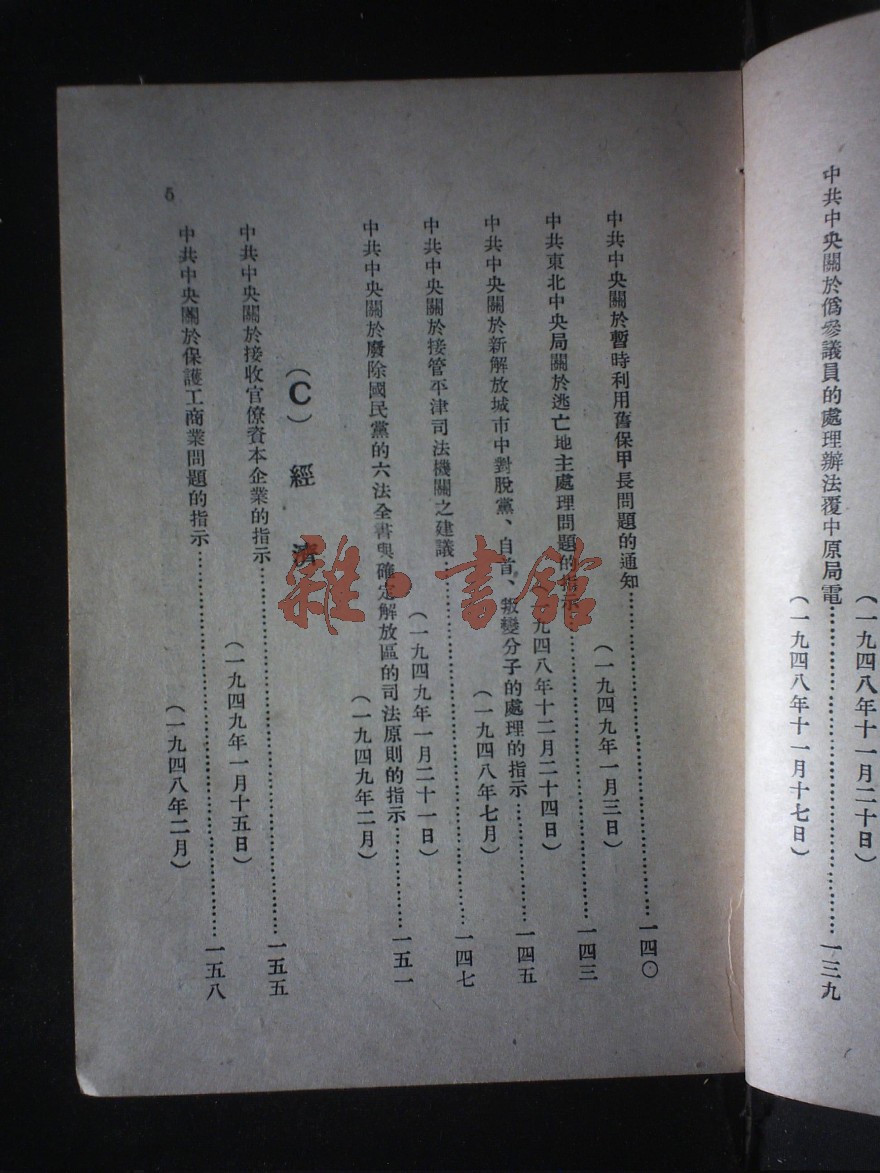 (一九四八年十一月二十日)
中共中央關於僞參議員的處理辦法覆中原局電……一三九
(一九四八年十一月十七日)
中共中央關於暫時利用舊保甲長問題的通知……一四〇
(一九四九年一月三日)
中共東北中央局關於逃亡地主處理問題的指示……一四三
九四八年十二月二十四日)
中共中央關於新解放城市中對脫黨、自首、叛變分子的處理的指示……一四五
(一九四八年七月)
中共中央關於接管平津司法機關之建議……一四七
(一九四九年一月二十一日)
中共中央關於廢除國民黨的六法全書與確定解放區的司法原則的指示……一五一
(一九四九年二月)
(C) 經 濟
中共中央關於接收官僚資本企業的指示……一五五
(一九四九年一月十五日)
中共中央關於保護工商業問題的指示……一五八
(一九四八年二月)
5
雜·書館